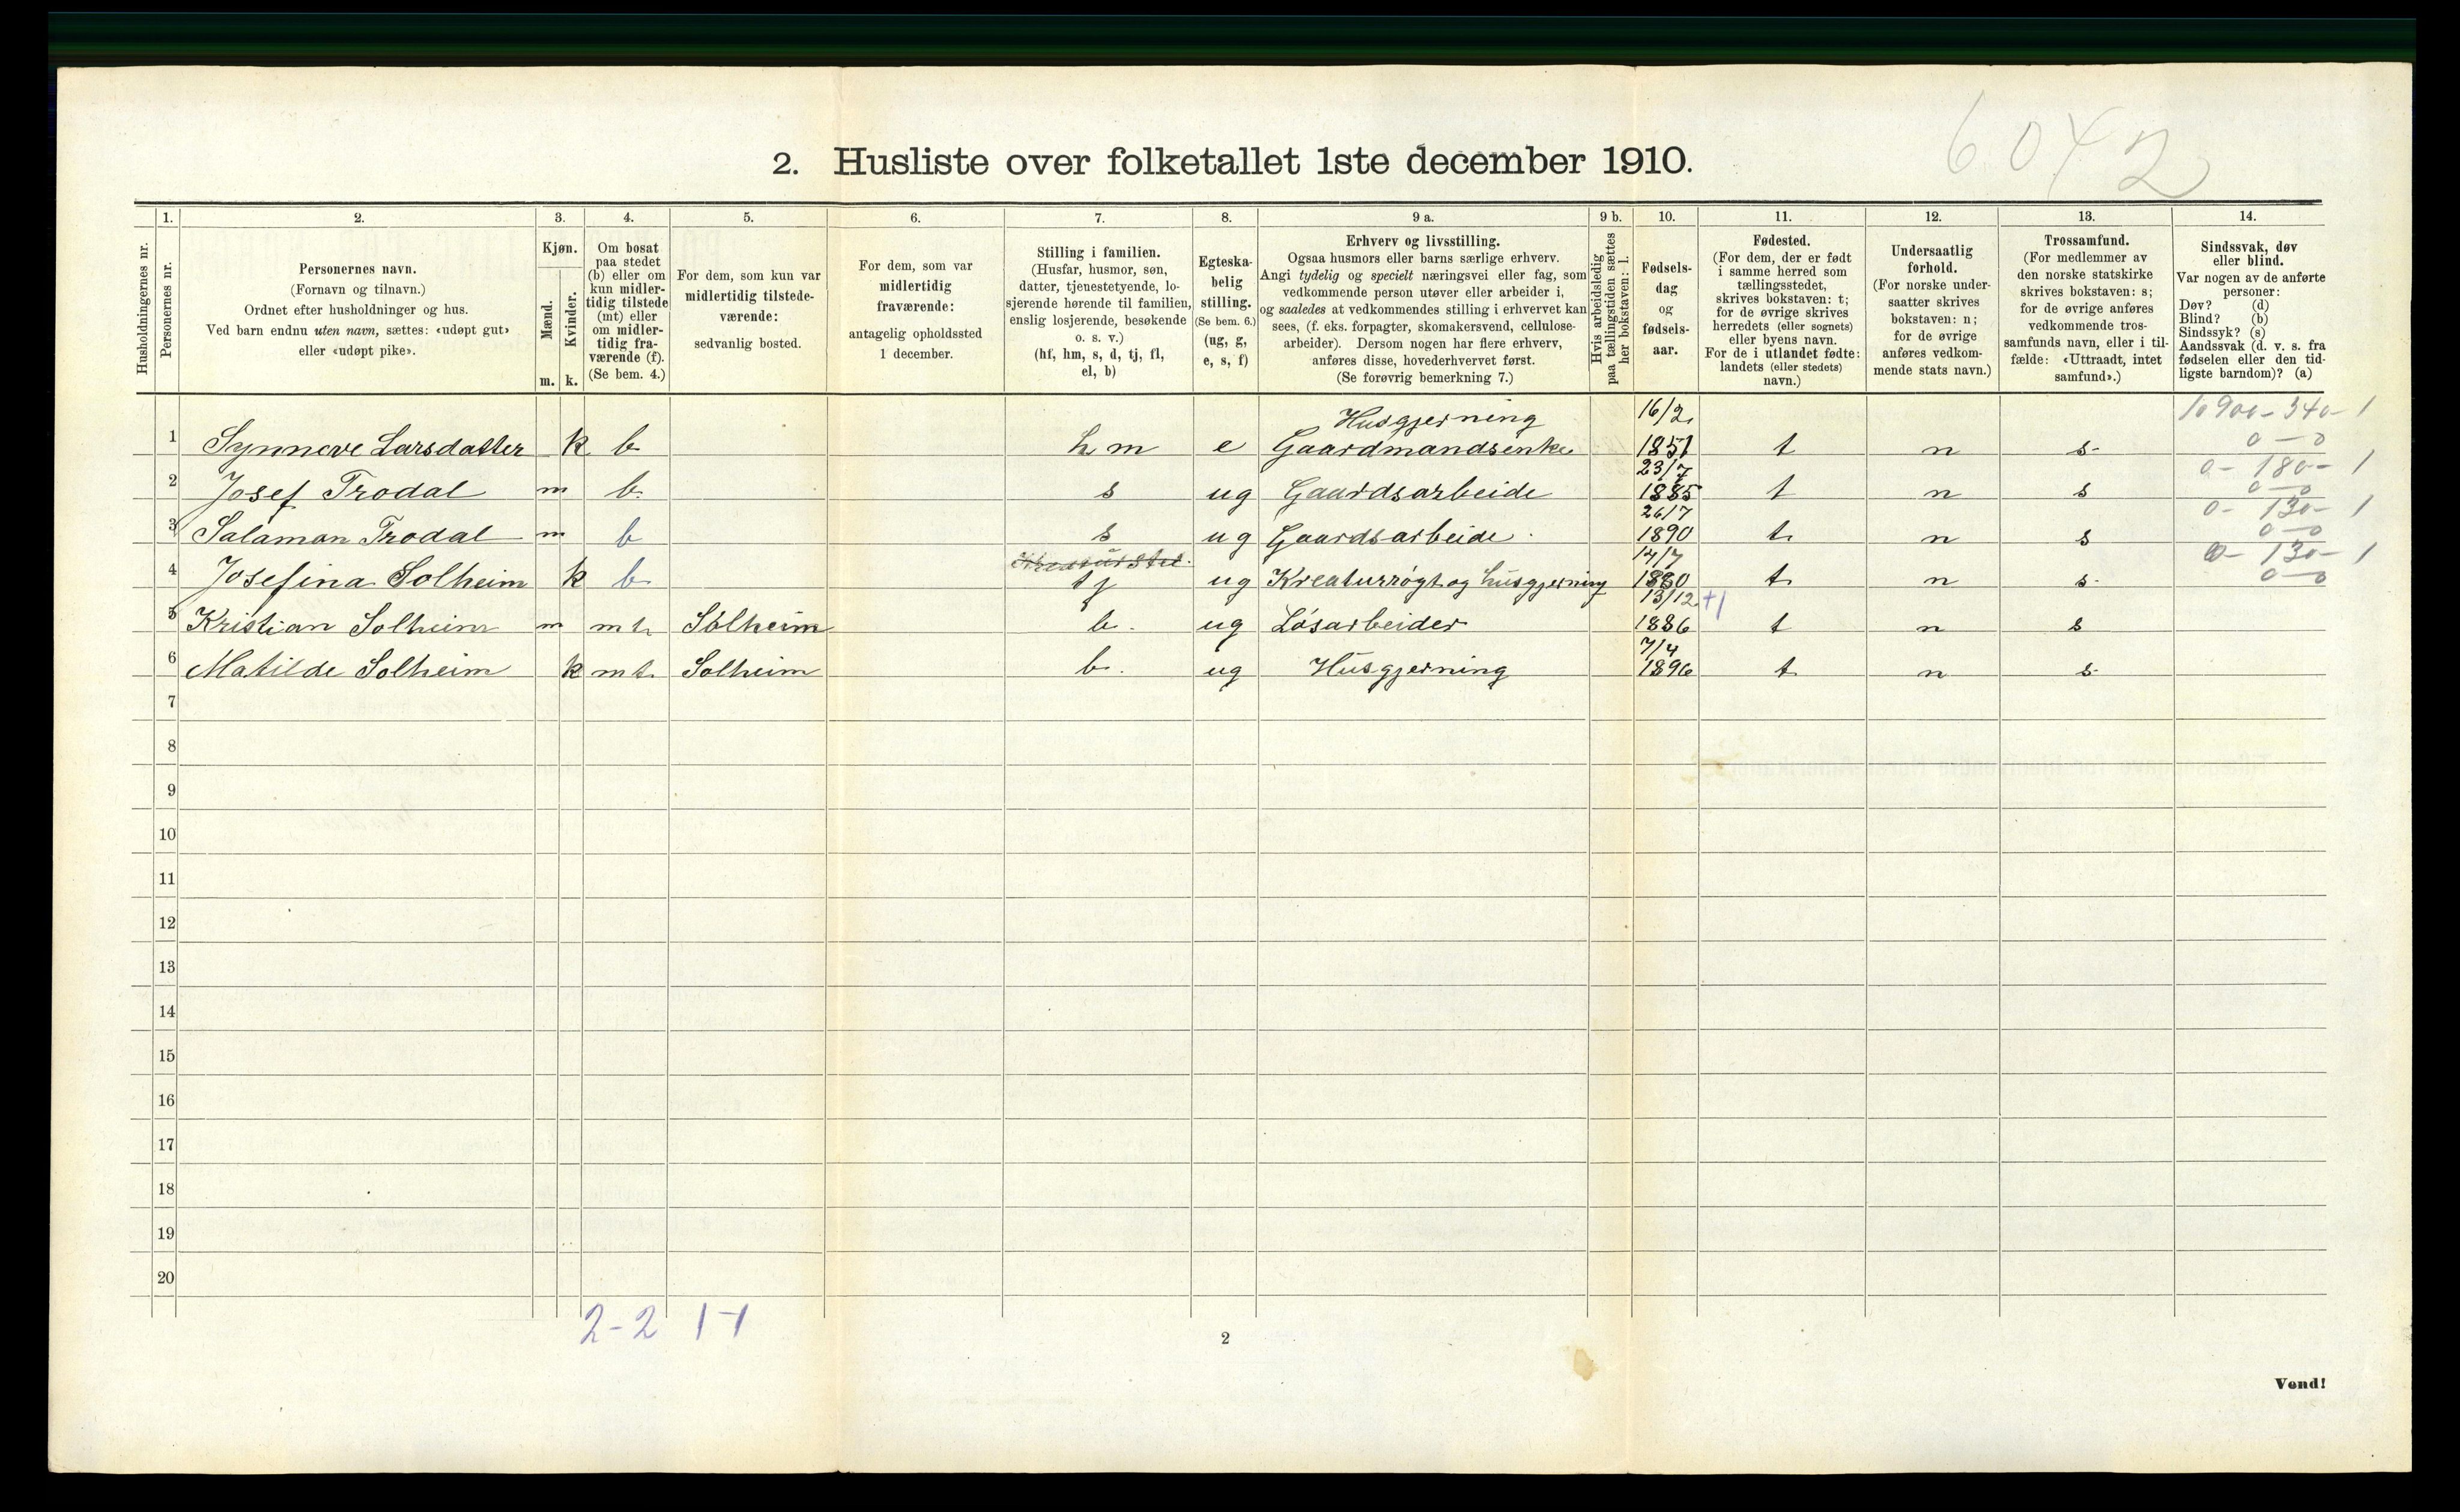 6042
2. Husliste over folketallet 1ste december 1910.
Husholdningernes nr.
1.
Personernes nr.
2.
Personernes navn.
(Fornavn og tilnavn.)
Ordnet efter husholdninger og hus.
Ved barn endnu uten navn, sættes: «udøpt gut»
eller «udøpt pike».
3.
Kjøn.
Mænd.
m.
Kvinder.
k.
4.
Om bosat
paa stedet
(b) eller om
kun midler-
tidig tilstede
(mt) eller
om midler-
tidig fra-
værende (f).
(Se bem. 4.)
5.
For dem, som kun var
midlertidig tilstede-
værende:
sedvanlig bosted.
6.
For dem, som var
midlertidig
fraværende:
antagelig opholdssted
1 december.
7.
Stilling i familien.
(Husfar, husmor, søn,
datter, tjenestetyende, lo-
sjerende hørende til familien,
enslig losjerende, besøkende
o. s. v.)
(hf, hm, s, d, tj, fl,
el, b)
8.
Egteska-
belig
stilling.
(Se bem. 6.)
(ug, g,
e, s, f)
9 a.
Erhverv og livsstilling.
Ogsaa husmors eller barns særlige erhverv.
Angi tydelig og specielt næringsvei eller fag, som
vedkommende person utøver eller arbeider i,
og saaledes at vedkommendes stilling i erhvervet kan
sees, (f. eks. forpagter, skomakersvend, cellulose-
arbeider). Dersom nogen har flere erhverv,
anføres disse, hovederhvervet først.
(Se forøvrig bemerkning 7.)
9 b.
Hvis arbeidsledig
paa tællingstiden sættes
her bokstaven: l.
10.
Fødsels-
dag
og
fødsels-
aar.
11.
Fødested.
(For dem, der er født
i samme herred som
tællingsstedet,
skrives bokstaven: t;
for de øvrige skrives
herredets (eller sognets)
eller byens navn.
For de i utlandet fødte:
landets (eller stedets)
navn.)
12.
Undersaatlig
forhold.
(For norske under-
saatter skrives
bokstaven: n;
for de øvrige
anføres vedkom-
mende stats navn.)
13.
Trossamfund.
(For medlemmer av
den norske statskirke
skrives bokstaven: s;
for de øvrige anføres
vedkommende tros-
samfunds navn, eller i til-
fælde: «Uttraadt, intet
samfund».)
14.
Sindssvak, døv
eller blind.
Var nogen av de anførte
personer:
Døv? (d)
Blind? (b)
Sindssyk? (s)
Aandssvak (d. v. s. fra
fødselen eller den tid-
ligste barndom)? (a)
Husgjerning 16/2 10900-340-1
1 Synneve Larsdatter k b hm e Gaardmandsenke 1851 t n s- 0-0
23/7 0-180-1
2 Josef Trodal m b. s ug Gaardsarbeide 1885 t n s 0-0
26/7 0-130-1
3 Salamon Trodal m b s ug Gaardsarbeide 1890 t. n s 0-0
14/7 0-130-1
4 Josefina Solheim k b tj ug Kreaturrøgt og husgjerning 1880 t. n s- 0-0
13/12 +1
5 Kristian Solheim m mt Sølheim b. ug Løsarbeider 1886 t n s
7/4
6 Matilde Solheim k mt. Solheim b. ug Husgjerning 1896 t n s-
7
8
9
10
11
12
13
14
15
16
17
18
19
20
2-2 1-1
2
Vend!